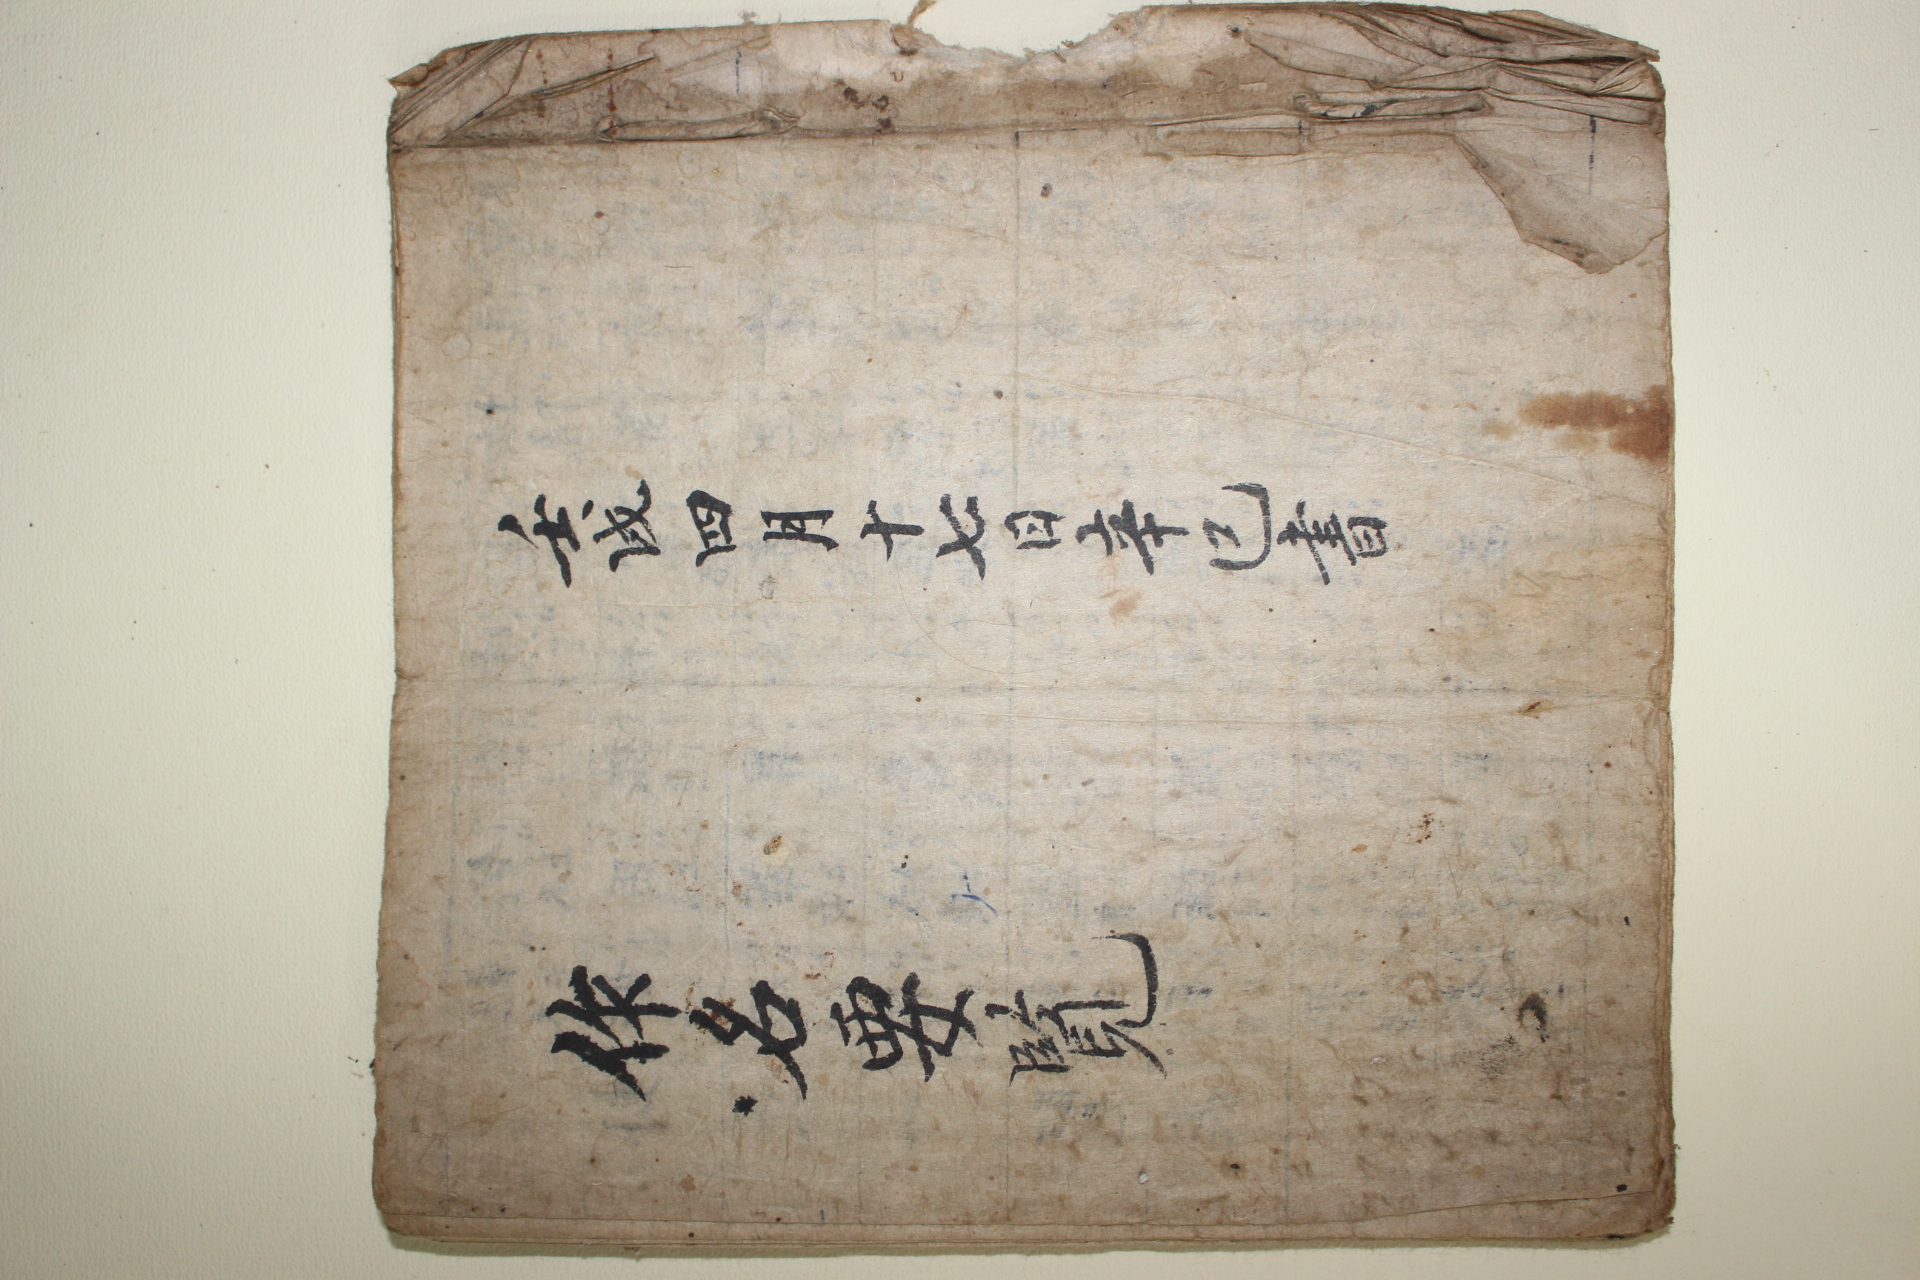 壬戌四月十七日辛巳書
作名要覽